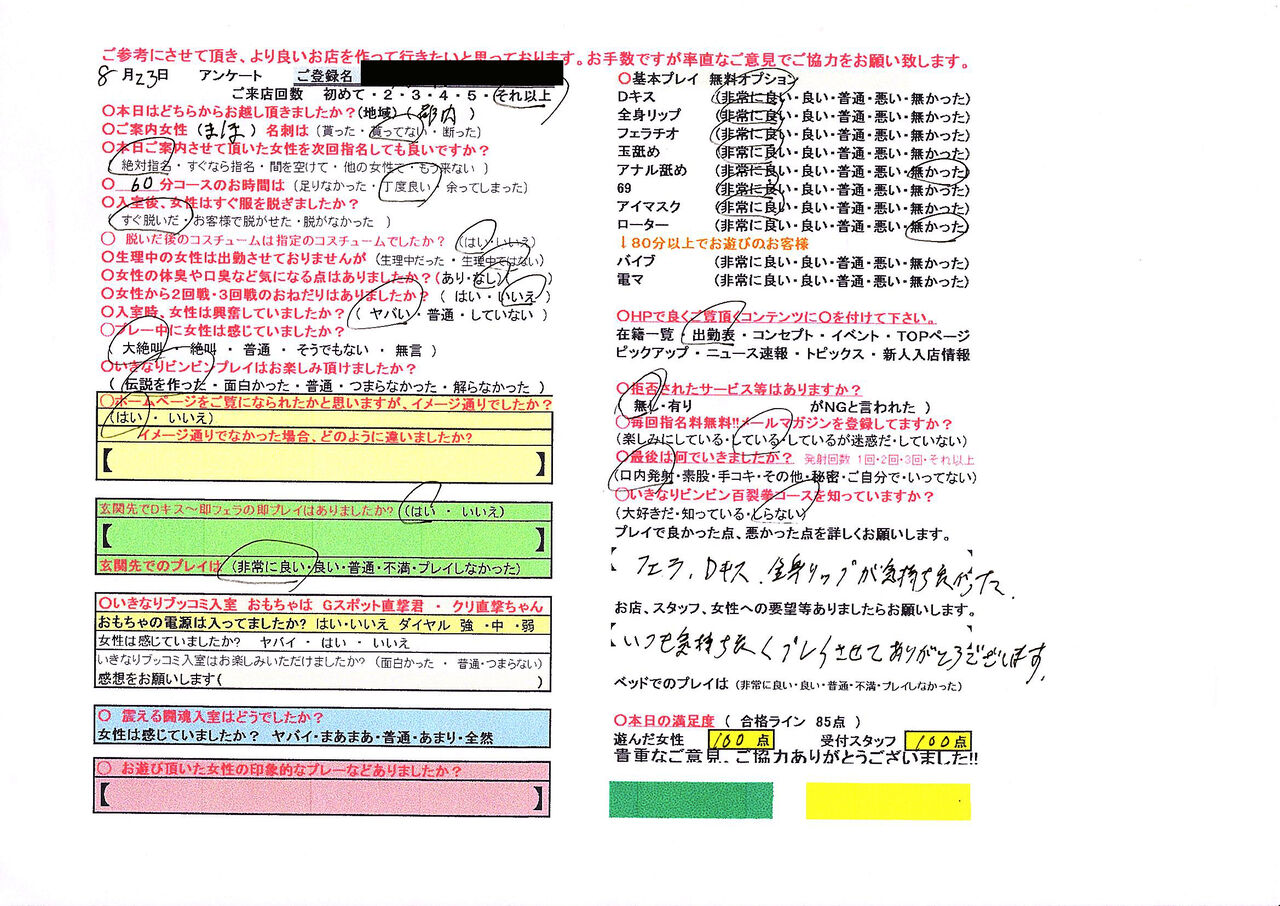 ご参考にさせて頂き、より良いお店を作って行きたいと思っております。お手数ですが率直なご意見でご協力をお願い致します。
8月23日 アンケート ご登録名
ご来店回数 初めて・2・3・4・5・それ以上
〇本日はどちらからお越し頂きましたか?(地域)( 都内 )
〇ご案内女性 ( まほ ) 名刺は (貰った・貰ってない・断った)
〇本日ご案内させて頂いた女性を次回指名しても良いですか?
(絶対指名・すぐなら指名・間を空けて・他の女性で・もう来ない)
〇 60 分コースのお時間は (足りなかった・丁度良い・余ってしまった)
〇入室後、女性はすぐ服を脱ぎましたか?
(すぐ脱いだ・お客様で脱がせた・脱がなかった )
〇 脱いだ後のコスチュームは指定のコスチュームでしたか? (はい・いいえ)
〇生理中の女性は出勤させておりませんが (生理中だった・生理中ではない)
〇女性の体臭や口臭など気になる点はありましたか?(あり・なし)( )
〇女性から2回戦・3回戦のおねだりはありましたか? ( はい・いいえ )
〇入室時、女性は興奮していましたか? ( ヤバい・普通・していない )
〇プレー中に女性は感じていましたか?
( 大絶叫・ 絶叫 ・ 普通 ・ そうでもない ・ 無言 )
〇いきなりビンビンプレイはお楽しみ頂けましたか?
( 伝説を作った・面白かった・普通・つまらなかった・解らなかった )
〇ホームページをご覧になられたかと思いますが、イメージ通りでしたか?
(はい ・ いいえ)
イメージ通りでなかった場合、どのように違いましたか?
【 】
玄関先でDキス～即フェラの即プレイはありましたか? (はい ・ いいえ)
【 】
玄関先でのプレイは (非常に良い・良い・普通・不満・プレイしなかった)
〇いきなりブッコミ入室 おもちゃは Gスポット直撃君 ・ クリ直撃ちゃん
おもちゃの電源は入ってましたか? はい・いいえ ダイヤル 強 ・中 ・弱
女性は感じていましたか? ヤバイ ・ はい ・ いいえ
いきなりブッコミ入室はお楽しみいただけましたか? (面白かった ・ 普通・つまらない)
感想をお願いします( )
〇 震える闘魂入室はどうでしたか?
女性は感じていましたか? ヤバイ・まあまあ・普通・あまり・全然
〇 お遊び頂いた女性の印象的なプレーなどありましたか?
【 】
〇基本プレイ 無料オプション
Dキス (非常に良い・良い・普通・悪い・無かった)
全身リップ (非常に良い・良い・普通・悪い・無かった)
フェラチオ (非常に良い・良い・普通・悪い・無かった)
玉舐め (非常に良い・良い・普通・悪い・無かった)
アナル舐め (非常に良い・良い・普通・悪い・無かった)
69 (非常に良い・良い・普通・悪い・無かった)
アイマスク (非常に良い・良い・普通・悪い・無かった)
ローター (非常に良い・良い・普通・悪い・無かった)
↓80分以上でお遊びのお客様
バイブ (非常に良い・良い・普通・悪い・無かった)
電マ (非常に良い・良い・普通・悪い・無かった)
〇HPで良くご覧頂くコンテンツに〇を付けて下さい。
在籍一覧・出勤表・コンセプト・イベント・TOPページ
ピックアップ・ニュース速報・トピックス・新人入店情報
〇拒否されたサービス等はありますか?
( 無し・有り がNGと言われた )
〇毎回指名料無料!!メールマガジンを登録してますか?
(楽しみにしている・している・しているが迷惑だ・していない)
〇最後は何でいきましたか? 発射回数 1回・2回・3回・それ以上
(口内発射・素股・手コキ・その他・秘密・ご自分で・いってない)
〇いきなりビンビン百裂拳コースを知っていますか?
(大好きだ・知っている・しらない)
プレイで良かった点、悪かった点を詳しくお願いします。
【 フェラ、Dキス、全身リップが気持ち良かった。 】
お店、スタッフ、女性への要望等ありましたらお願いします。
【 いつも気持ち良くプレイさせてありがとうございます。 】
ベッドでのプレイは (非常に良い・良い・普通・不満・プレイしなかった)
〇本日の満足度 ( 合格ライン 85点 )
遊んだ女性 100 点 受付スタッフ 100 点
貴重なご意見、ご協力ありがとうございました!!